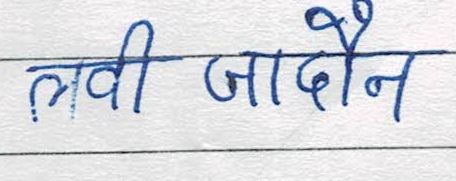 लवी जादौन